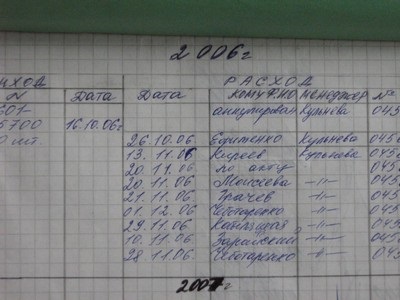 2006г
ИХОД РАСХОД
N Дата Дата кому ФИО менеджер №
601- аннулирован 045
5700 16.10.06г
0 шт 26.10.06. Ефименко 045
13. 11.06 Киреев 045
20 11.06 по акту 045
20 11.06 Моисеева -"- 045
21. 11.06 Грачев -"- 045
01. 12. 06 Чеботаренко -"- 045
29. 11.06 -"- 045
10. 11.06 Зарайский -"- 045
28 11.06 Чеботаренко -"- 045
2007